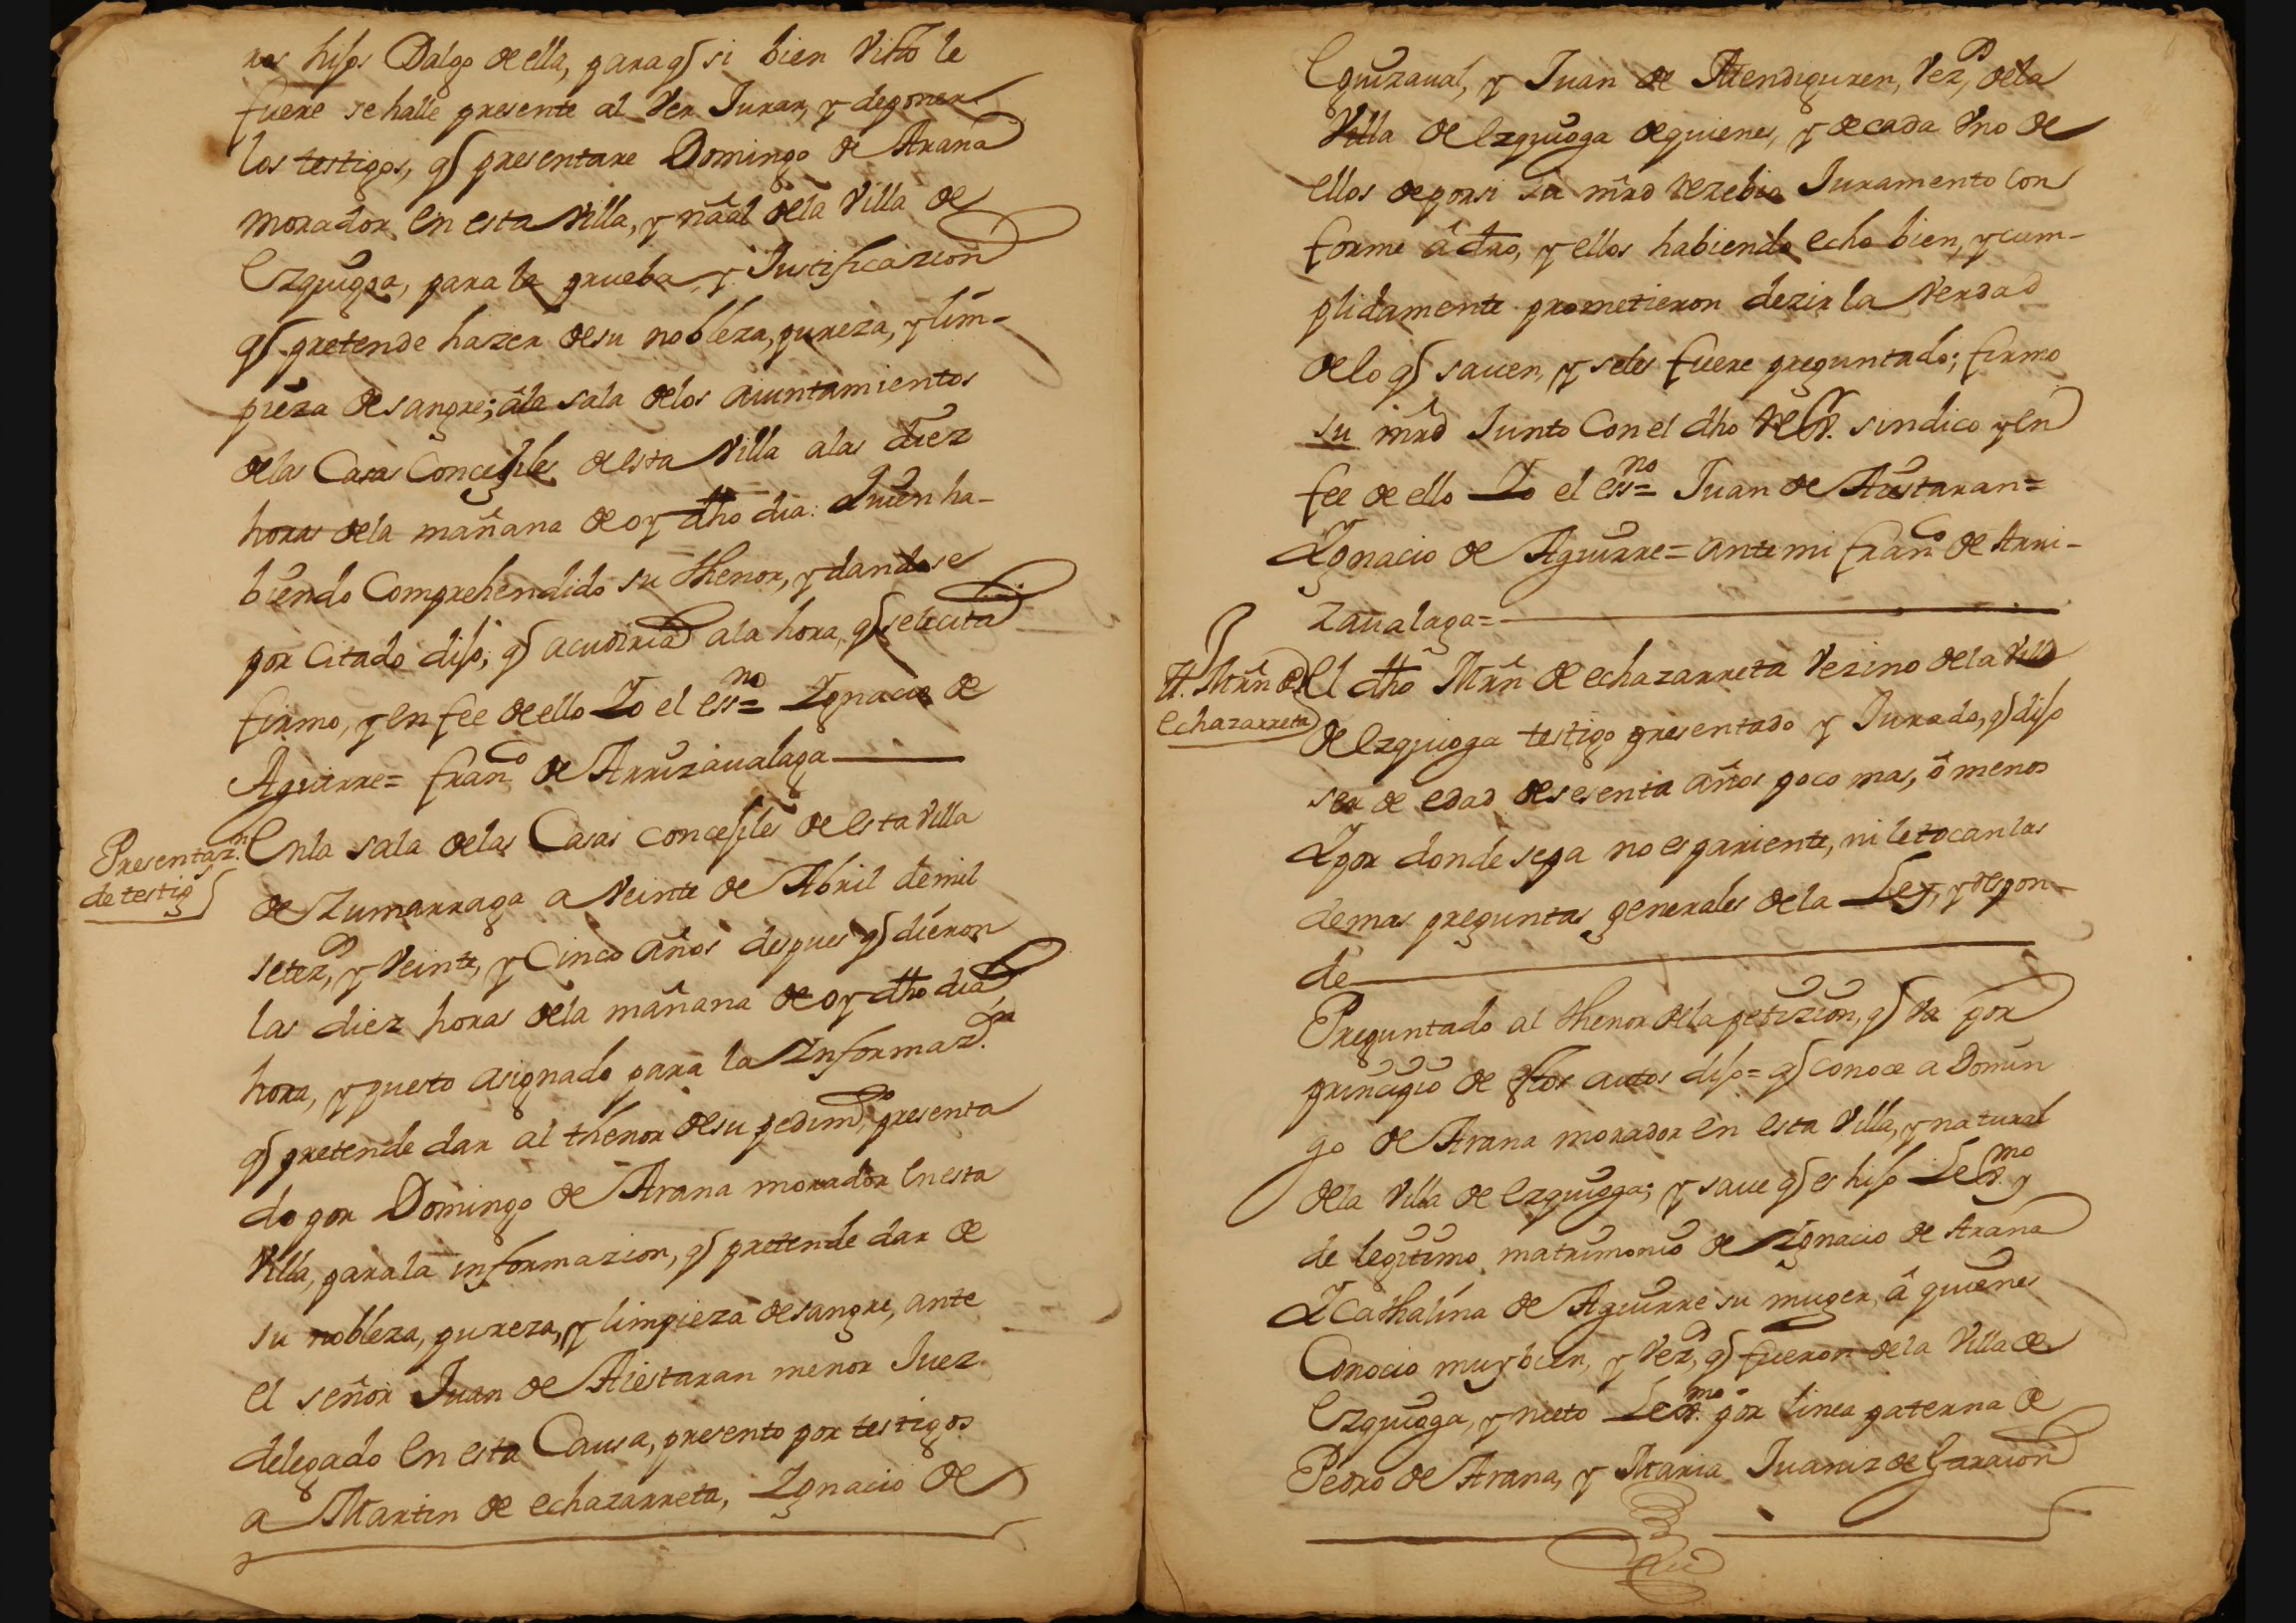 ros hijos Dalgo de ella, para q̃ si bien visto le
fuere se halle presente al ver Jurar, y deponer
los testigos, q̃ presentare Domingo de Arana
morador en esta villa, y nāāl dela villa de
Ezquioga, para la prueba, y Justificazion
q̃ pretende hazer de su nobleza, pureza, y lim-
pieza de sangre; âla sala delos aiuntamientos
delas Casas Concejiles de esta villa alas diez
horas dela mañana de oy dho dia: Quien ha-
biendo Comprehendido su thenor, y dandose
por Citado dijo; q̃ acudiria ala hora, q̃ selecita
firmo, y en fee de ello Yo el essno= Ygnacio de
Aguirre= franco de Arrizaualaga
Presentazn
de testigs
Enla sala delas Casas concejiles de esta villa
de Zumarraga a veinte de Abril de mil
setezs, y veinte, y Cinco años despues q̃ dieron
las diez horas dela mañana de oy dho dia
hora, y puesto asignado para la Informazn
q̃ pretende dar al thenor de su pedimto presenta
do por Domingo de Arana morador en esta
villa, para la informazion, q̃ pretende dar de
su nobleza, pureza, y limpieza de sangre, ante
el señor Juan de Aiestaran menor Juez
delegado en esta Causa, presento por testigos
a Martin de echazarreta, Ygnacio de
Eguizaual, y Juan de Mendiguren, vezs, dela
villa de Ezquioga de quienes, y de cada vno de
ellos de por si su mrd rezebio Juramento con
forme â dro, y ellos habiendo echo bien, y cum-
plidamente prometieron dezir la verdad
delo q̃ sauen, y seles fuere preguntado; firmo
su mrd Junto Con el dho sindico y en
fee de ello Yo el essno= Juan de Aiestaran=
Ygnacio de Aguirre= ante mi franco de Arri-
zaualaga=
tt. Mrn de
echazarreta
El dho Mrn de echazarreta vezino dela villa
de Ezquioga testigo presentado y Jurado, q̃ dijo
ser de edad de sesenta años poco mas, ô menos
Y por donde sepa no es pariente, ni le tocan las
demas preguntas generales dela Ley, y respon-
de
Preguntado al thenor dela petizion, q̃ va por
principio de stos autos dijo= q̃ conoce a Domin
go de Arana morador en esta villa, y natural
dela villa de Ezquioga; y saue q̃ es hijo Legmo y
de legitimo matrimonio de Ygnacio de Arana
Y Cathalina de Aguirre su muger, â quienes
Conocio muy bien, y vezs, q̃ fueron dela villa de
Ezquioga, y nieto Legmo por linea paterna de
Pedro de Arana, y Maria Juaniz de Garaion